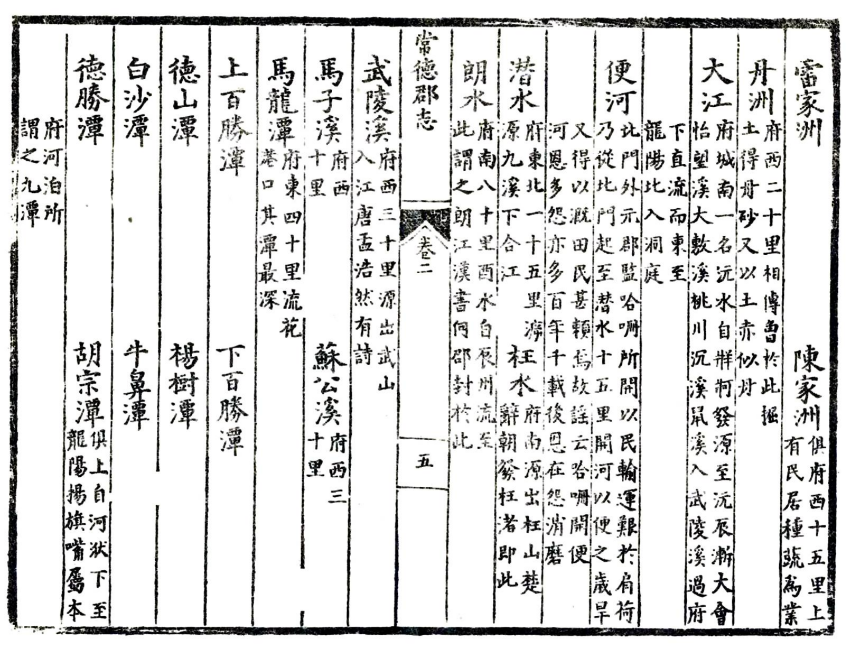 雷家洲　陳家洲 俱府西十五里上
有民居種蔬為業
丹洲 府西二十里相傳曽於此掘
土得丹砂又以土赤似丹
大江 府城南一名沅水自牂牁發源至沅辰漸大會
怡望溪大敷溪桃川沉溪鼠溪入武陵溪過府
下直流而東至
龍陽北入洞庭
便河 北門外元郡監哈嘣所開以民輸運艱於肩荷
乃從北門起至潛水十五里開河以便之歲旱
又得以溉田民甚賴焉故謡云哈嘣開便
河恩多怨亦多百年千載後恩在怨消磨
潛水 府東北一十五里
源九溪下合江
枉水 府南源出枉山楚
辭朝發枉渚即此
朗水 府南八十里酉水自辰州流至
此謂之朗江漢書何郡封於此
常德郡志　卷二　五
武陵溪 府西三十里源出武山
入江唐孟浩然有詩
馬子溪 府西
十里
蘇公溪 府西三
十里
馬龍潭 府東四十里流花
巷口其潭最深
上百勝潭　下百勝潭
德山潭　楊樹潭
白沙潭　牛鼻潭
德勝潭　胡宗潭 俱上自河洑下至
龍陽揚旗嘴屬本
府河泊所
謂之九潭